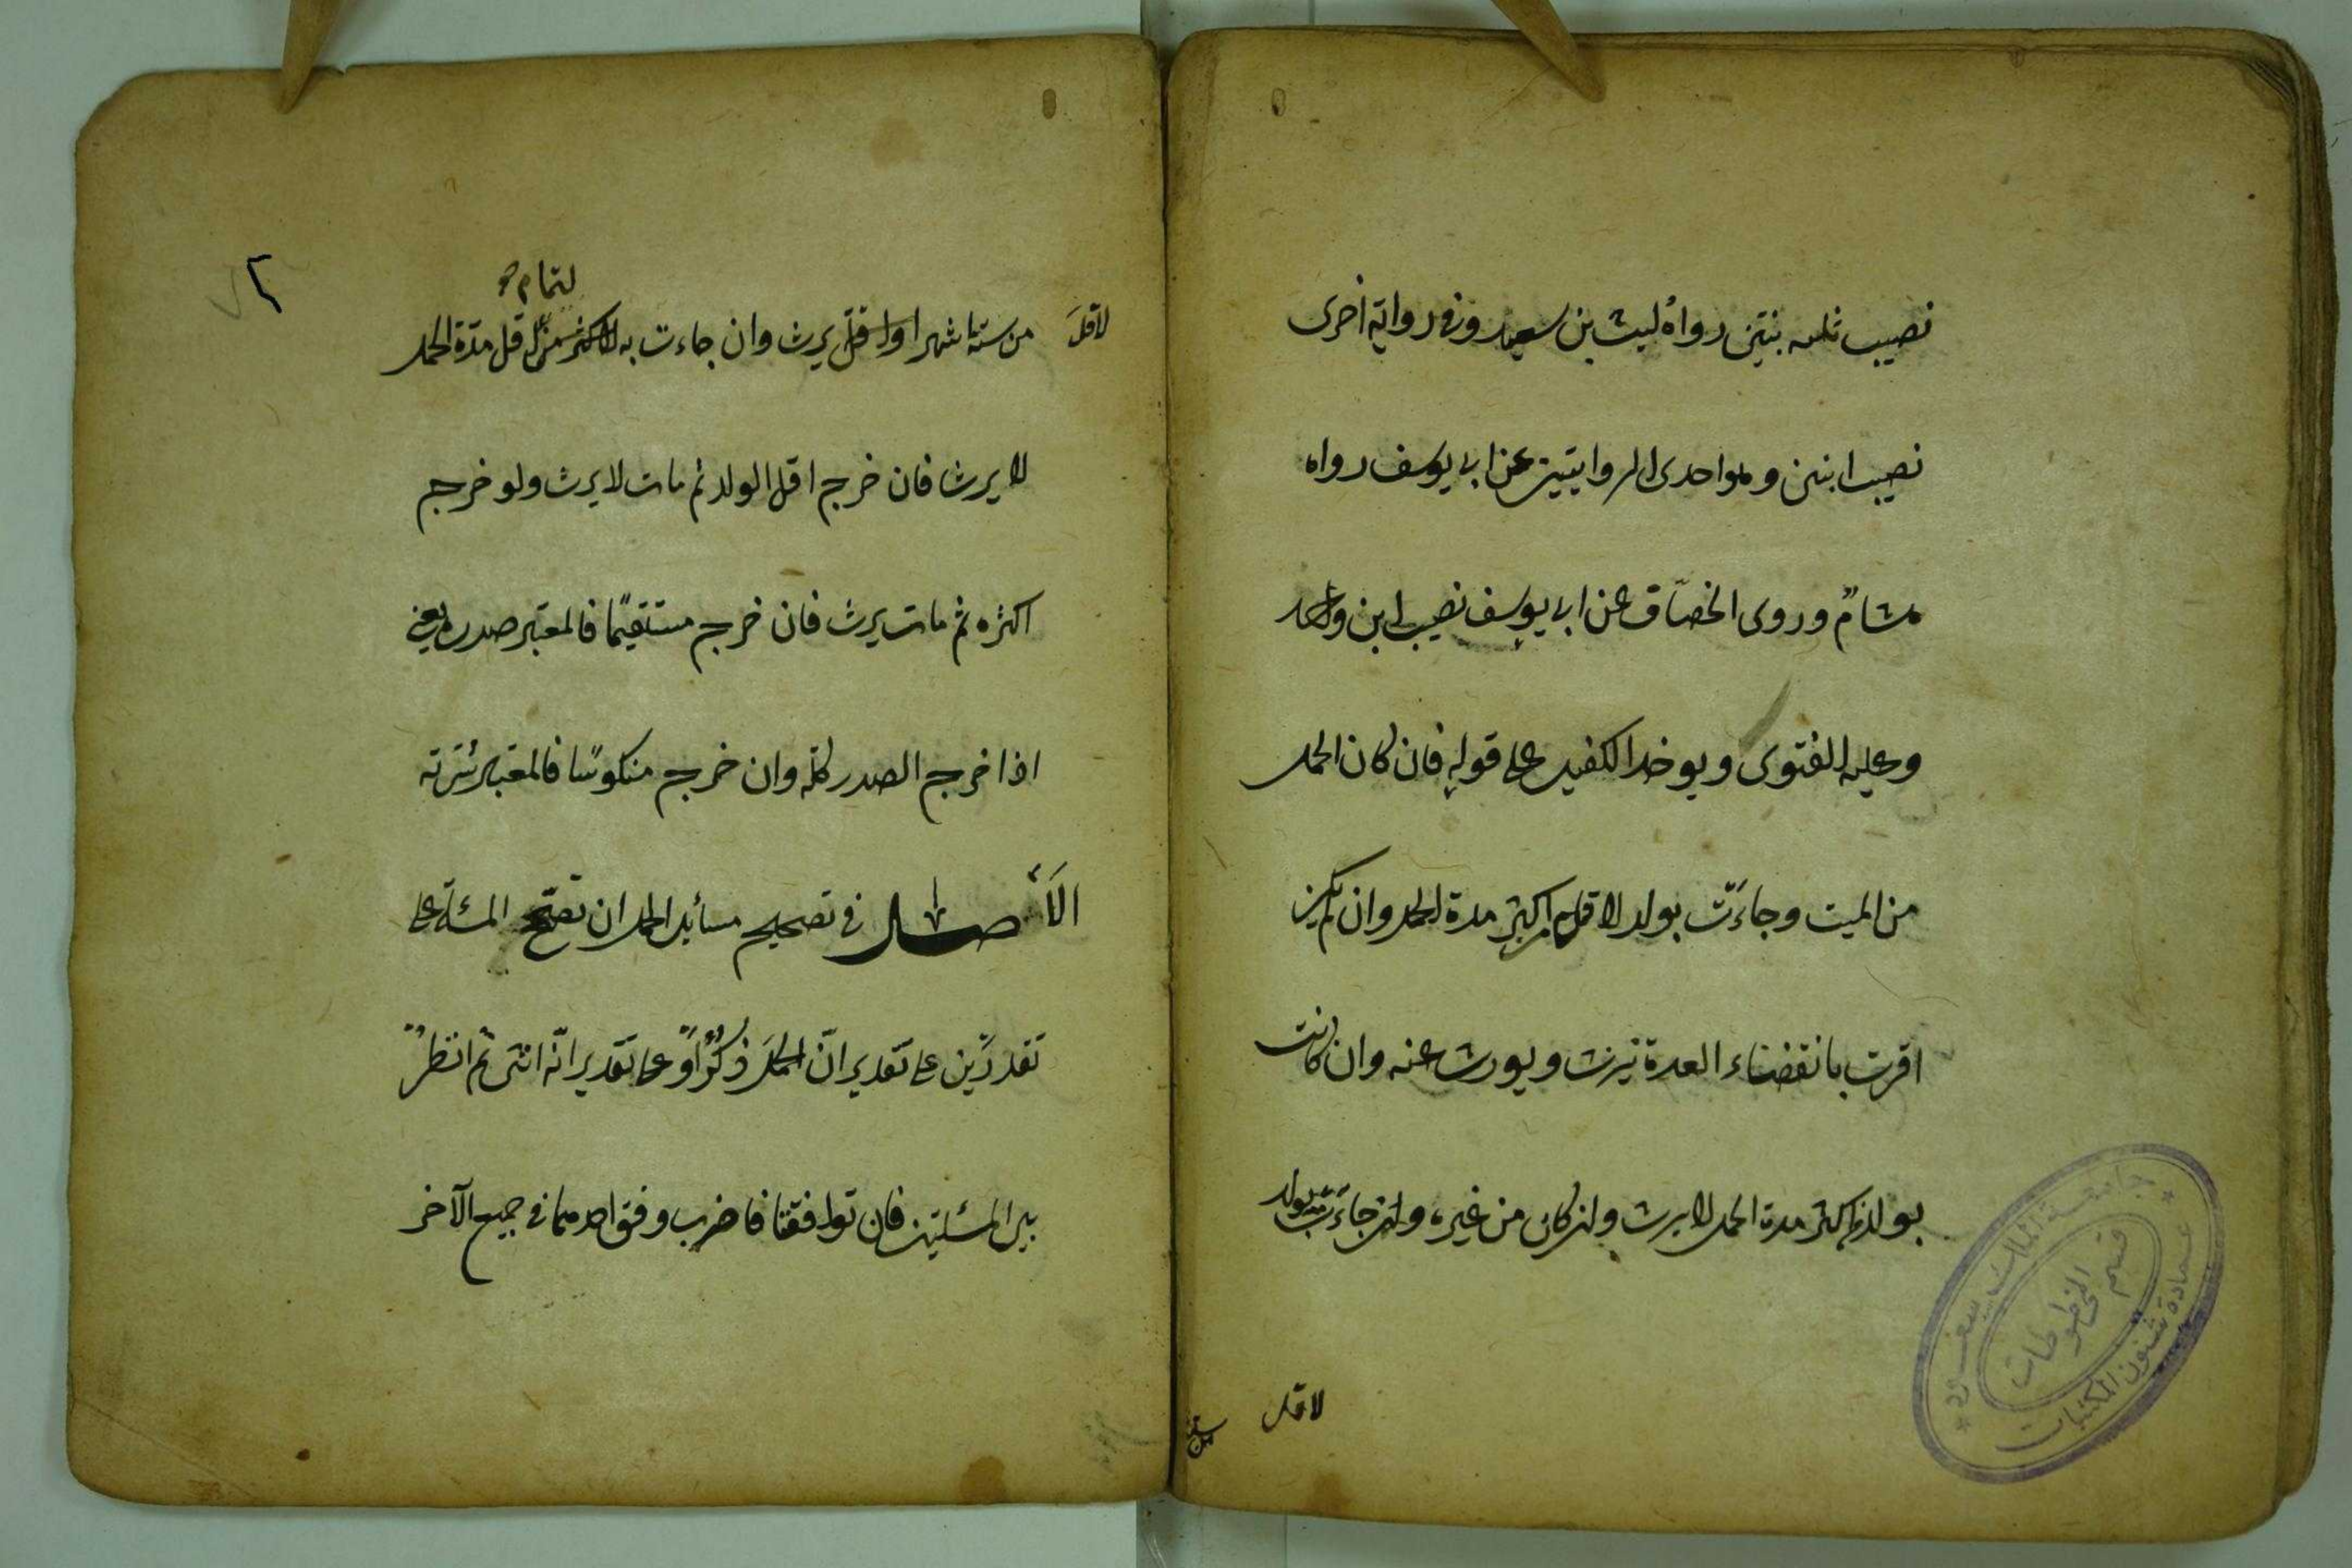 نصيب ثلثه بنين رواه ليث بن سعيد وفي رواية اخرى
نصيب ابنين وهو احدى الروايتين عن ابي يوسف رواه
هشام وروى الخصاف عن ابي يوسف نصيب ابن واحد
وعليه الفتوى ويوخذ الكفيل على قوله فان كان الحمل
من الميت وجاءت بولد لاقل من اكثر مدة الحمل وان لم يكن
اقرت بانقضاء العدة يرث ويورث عنه وان كانت
بولد اكثر مدة الحمل لا يرث وان كان من غيره وان جاءت بولد
لاقل
جامعة الملك سعود
عمادة شئون المكتبات
قسم المخطوطات
٢
لتمام
لاقل من ستة اشهر او اقل يرث وان جاءت به لاكثر من اقل مدة الحمل
لا يرث فان خرج اقل الولد ثم مات لا يرث ولو خرج
اكثره ثم مات يرث فان خرج مستقيما فالمعتبر صدره يعني
اذا خرج الصدر كله وان خرج منكوسا فالمعتبر سرته
الاصل في تصحيح مسايل الحمل ان تصحح المسئلة على
تقديرين على تقدير ان الحمل ذكر او على تقدير انه انثى ثم انظر
بين المسئلتين فان توافقتا فاضرب وفق احدهما في جميع الآخر